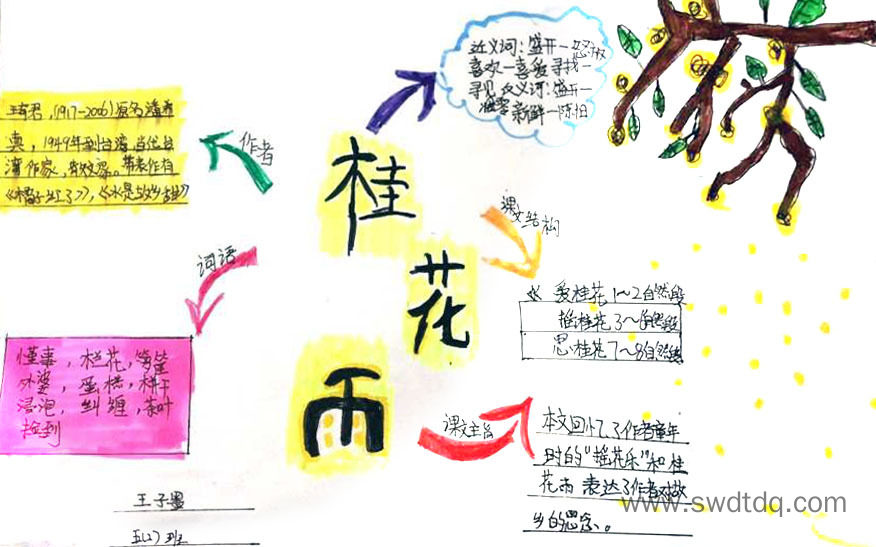 桂
花
雨
近义词：盛开—怒放
喜欢—喜爱 寻找—
寻见 反义词：盛开—
新鲜—陈旧
作者
琦君，(1917-2006)原名潘希
真，1949年到台湾，当代台
湾作家，散文家。带表作有
《橘子红了》，《水是故乡甜》
词语
懂事，栏花，箩筐
外婆，蛋糕，饼干
浸泡，纠缠，茶叶
捡到
课文结构
爱桂花1～2自然段
摇桂花3～6自然段
思桂花7～8自然段
课文主旨
本文回忆了作者童年
时的“摇花乐”和桂
花雨 表达了作者对故
乡的思念。
王子墨
五(2)班
www.swdtdq.com